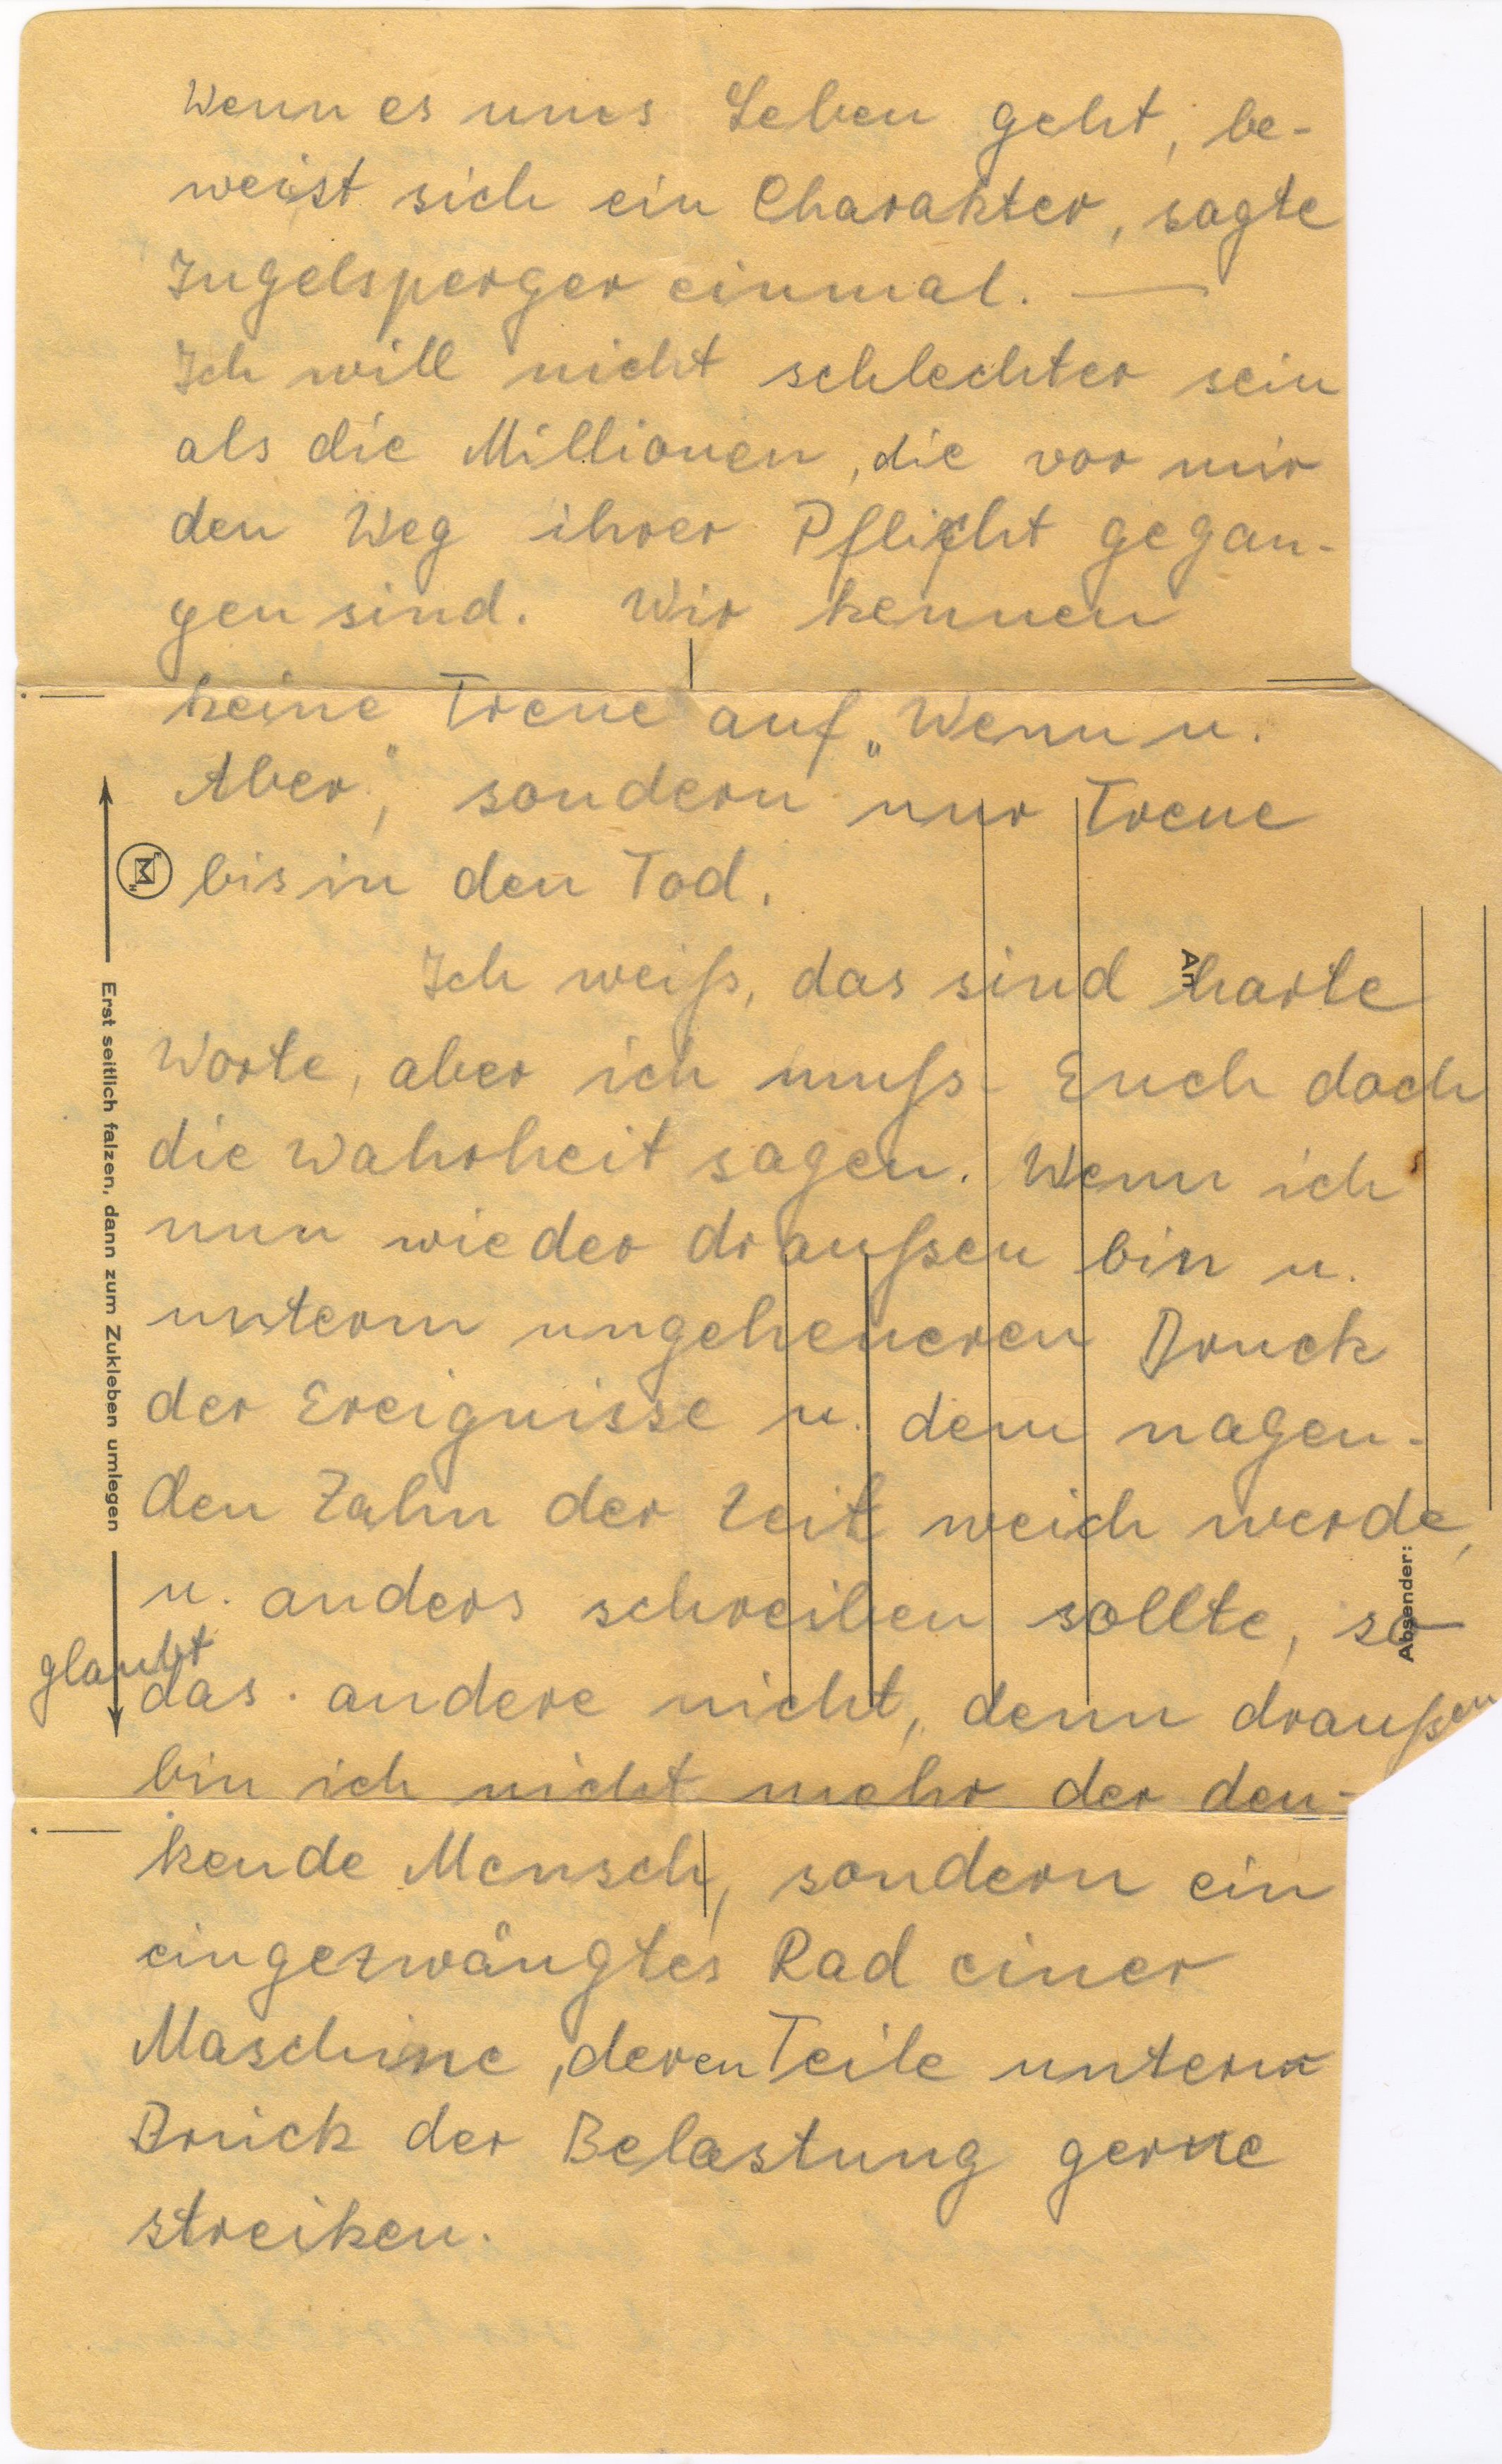 Wenn es ums Leben geht, be-
weist sich ein Charakter, sagte
Ingelsperger einmal. —
Ich will nicht schlechter sein
als die Millionen, die vor mir
den Weg ihrer Pflicht gegan-
gen sind. Wir kennen
keine Treue auf „Wenn u.
Aber", sondern nur Treue
bis in den Tod.
Ich weiß, das sind harte
Worte, aber ich muß Euch doch
die Wahrheit sagen. Wenn ich
nun wieder draußen bin u.
unterm ungeheueren Druck
der Ereignisse u. dem nagen-
den Zahn der Zeit weich werde,
u. anders schreiben sollte, so
glaubt
das andere nicht, denn draußen
bin ich nicht mehr der den-
kende Mensch, sondern ein
eingezwängtes Rad einer
Maschine, deren Teile unterm
Druck der Belastung gerne
streiken.
Erst seitlich falzen, dann zum Zukleben umlegen
An
Absender: